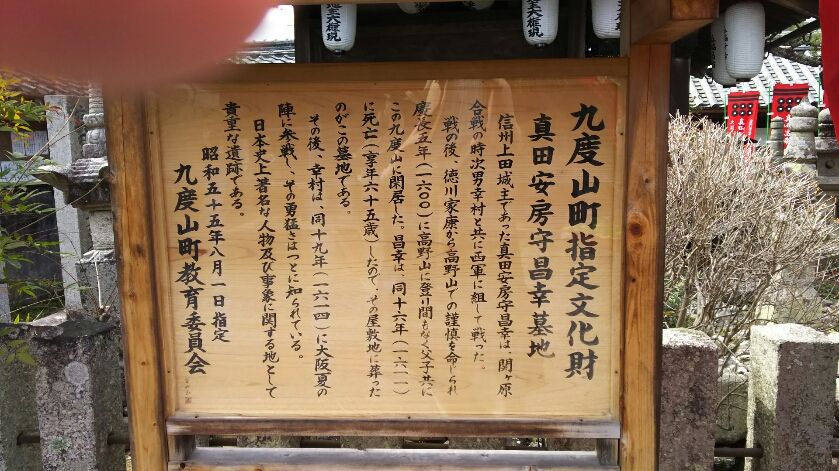 九度山町指定文化財
真田安房守昌幸墓地
信州上田城主であった真田安房守昌幸は、関ヶ原
合戦の時次男幸村と共に西軍に組して戦った。
戦の後、徳川家康から高野山での謹慎を命じられ
慶長五年(一六〇〇)に高野山に登り間もなく父子共に
この九度山に閑居した。昌幸は、同十六年(一六一一)
に死亡(享年六十五歳)したので、その屋敷地に葬った
のがこの墓地である。
その後、幸村は、同十九年(一六一四)に大阪夏の
陣に参戦、その勇猛さはつとに知られている。
日本史上著名な人物及び事象に関する地として
貴重な遺跡である。
昭和五十五年八月一日指定
九度山町教育委員会